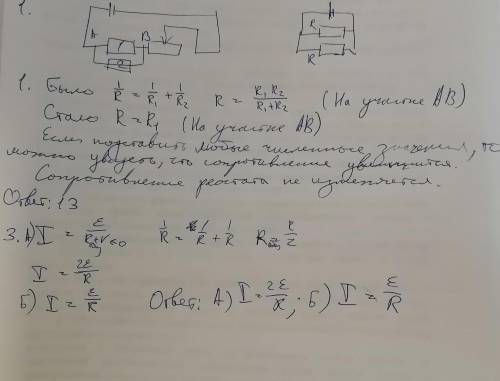 1.
A 1 B
2
R
R
1. Было 1/R = 1/R₁ + 1/R₂ R = R₁R₂/(R₁+R₂) (На участке AB)
Стало R = R₁ (На участке AB)
Если подставить любые численные значения, то
можно увидеть, что сопротивление увеличится.
Сопротивление реостата не изменяется.
Ответ: 13
3. А) I = ε/ 1/R = 1/R + 1/R
I = 2ε/R
Б) I = ε/R Ответ: А) I = 2ε/R; Б) I = ε/R